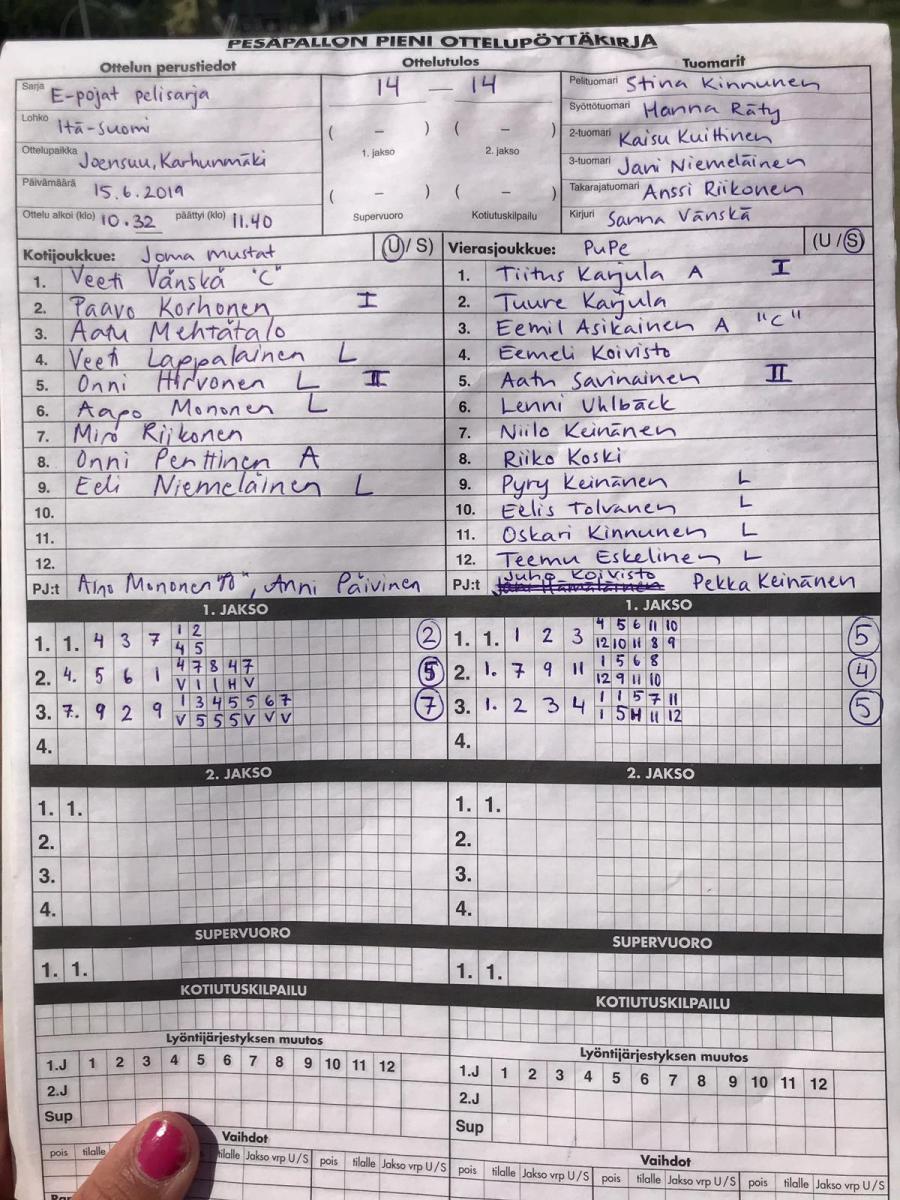 PESÄPALLON PIENI OTTELUPÖYTÄKIRJA
Ottelun perustiedot
Sarja E-pojat pelisarja
Lohko Itä-Suomi
Ottelupaikka Joensuu, Karhunmäki
Päivämäärä 15.6.2019
Ottelu alkoi (klo) 10.32 päättyi (klo) 11.40
Ottelutulos
14 – 14
( – ) ( – )
1. jakso 2. jakso
( – ) ( – )
Supervuoro Kotiutuskilpailu
Tuomarit
Pelituomari Stina Kinnunen
Syöttötuomari Hanna Räty
2-tuomari Kaisu Kuittinen
3-tuomari Jani Niemeläinen
Takarajatuomari Anssi Riikonen
Kirjuri Sanna Vänskä
Kotijoukkue: Joma mustat (U/S)
1. Veeti Vänskä "C"
2. Paavo Korhonen I
3. Aatu Mehtätalo
4. Veeti Lappalainen L
5. Onni Hirvonen L II
6. Aapo Mononen L
7. Miro Riikonen
8. Onni Penttinen A
9. Eeli Niemeläinen L
10.
11.
12.
PJ:t Aino Mononen , Anni Päivinen
Vierasjoukkue: PuPe (U/S)
1. Tiitus Karjula A I
2. Tuure Karjula
3. Eemil Asikainen A "C"
4. Eemeli Koivisto
5. Aatu Savinainen II
6. Lenni Uhlbäck
7. Niilo Keinänen
8. Riiko Koski
9. Pyry Keinänen L
10. Eelis Tolvanen L
11. Oskari Kinnunen L
12. Teemu Eskelinen L
PJ:t Juho Koivisto Pekka Keinänen
1. JAKSO
1. 1. 4 3 7 1 2 2
4 5
2. 4. 5 6 1 4 7 8 4 7 5
V 1 1 H V
3. 7. 9 2 9 1 3 4 5 5 6 7 7
V 5 5 5 V V V
4.
1. JAKSO
1. 1. 1 2 3 4 5 6 11 10 5
12 10 11 8 9
2. 1. 7 9 11 1 5 6 8 4
12 9 11 10
3. 1. 2 3 4 1 1 5 7 11 5
1 5 H 11 12
4.
2. JAKSO
1. 1.
2.
3.
4.
2. JAKSO
1. 1.
2.
3.
4.
SUPERVUORO
1. 1.
SUPERVUORO
1. 1.
KOTIUTUSKILPAILU
KOTIUTUSKILPAILU
Lyöntijärjestyksen muutos
1.J 1 2 3 4 5 6 7 8 9 10 11 12
2.J
Sup
Lyöntijärjestyksen muutos
1.J 1 2 3 4 5 6 7 8 9 10 11 12
2.J
Sup
Vaihdot
pois tilalle tilalle Jakso vrp U/S pois tilalle Jakso vrp U/S
Vaihdot
pois tilalle Jakso vrp U/S pois tilalle Jakso vrp U/S